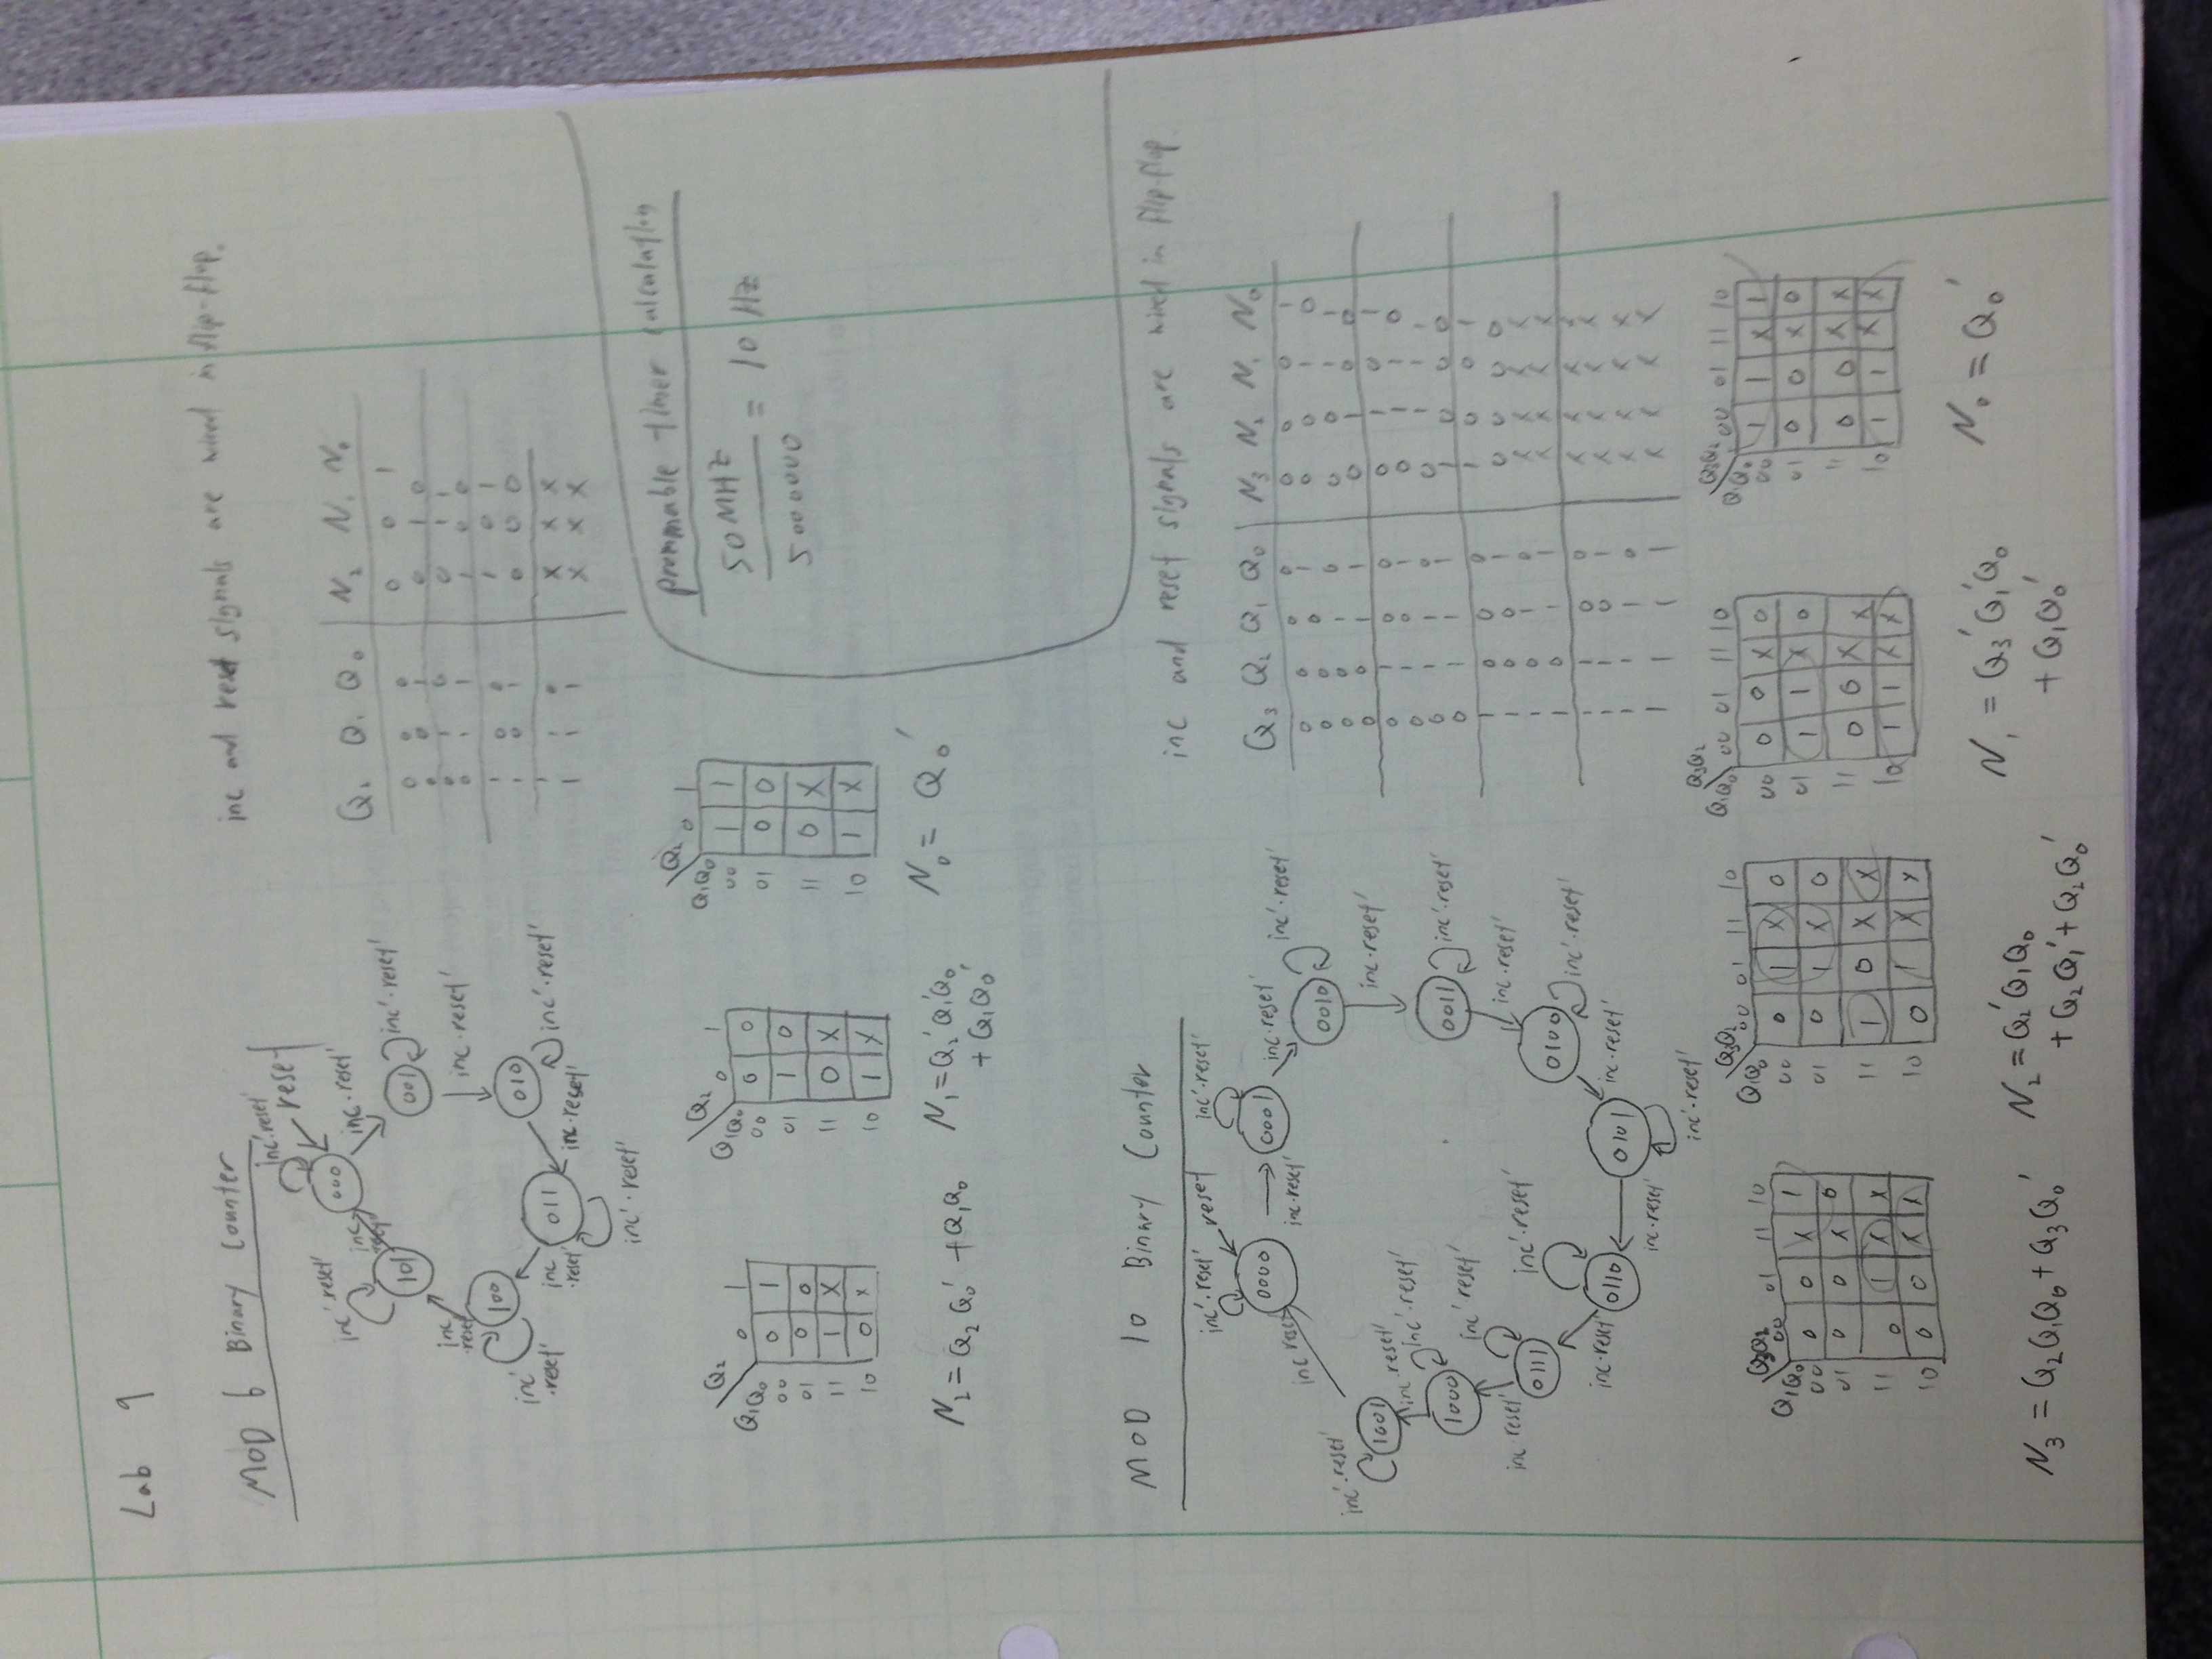 Lab 9
MOD 6 Binary Counter
inc and reset signals are wired in flip-flop.
reset
inc'·reset'
000
inc·reset'
001
inc'·reset'
inc·reset'
010
inc'·reset'
inc·reset'
011
inc'·reset'
inc·reset'
100
inc'·reset'
inc·reset'
101
inc'·reset'
inc·reset'
Q₂ Q₁ Q₀ N₂ N₁ N₀
0 0 0 0 0 1
0 0 1 0 1 0
0 1 0 0 1 1
0 1 1 1 0 0
1 0 0 1 0 1
1 0 1 0 0 0
1 1 0 X X X
1 1 1 X X X
Q₁Q₀ \ Q₂ 0 1
00 0 1
01 0 0
11 1 X
10 0 X
N₂ = Q₂Q₀' + Q₁Q₀
Q₁Q₀ \ Q₂ 0 1
00 0 0
01 1 0
11 0 X
10 1 X
N₁ = Q₂'Q₁'Q₀
+ Q₁Q₀'
Q₁Q₀ \ Q₂ 0 1
00 1 1
01 0 0
11 0 X
10 1 X
N₀ = Q₀'
Prommable timer calculation
50MHz
5000000
= 10 Hz
MOD 10 Binary Counter
inc and reset signals are wired in flip-flop.
reset
inc'·reset'
0000
inc·reset'
0001
inc'·reset'
inc·reset'
0010
inc'·reset'
inc·reset'
0011
inc'·reset'
inc·reset'
0100
inc'·reset'
inc·reset'
0101
inc'·reset'
inc·reset'
0110
inc'·reset'
inc·reset'
0111
inc'·reset'
inc·reset'
1000
inc'·reset'
inc·reset'
1001
inc'·reset'
inc reset'
Q₃ Q₂ Q₁ Q₀ N₃ N₂ N₁ N₀
0 0 0 0 0 0 0 1
0 0 0 1 0 0 1 0
0 0 1 0 0 0 1 1
0 0 1 1 0 1 0 0
0 1 0 0 0 1 0 1
0 1 0 1 0 1 1 0
0 1 1 0 0 1 1 1
0 1 1 1 1 0 0 0
1 0 0 0 1 0 0 1
1 0 0 1 0 0 0 0
1 0 1 0 X X X X
1 0 1 1 X X X X
1 1 0 0 X X X X
1 1 0 1 X X X X
1 1 1 0 X X X X
1 1 1 1 X X X X
Q₁Q₀ \ Q₃Q₂ 00 01 11 10
00 0 0 X 1
01 0 0 X 0
11 0 1 X X
10 0 0 X X
N₃ = Q₂Q₁Q₀ + Q₃Q₀'
Q₁Q₀ \ Q₃Q₂ 00 01 11 10
00 0 1 X 0
01 0 1 X 0
11 1 0 X X
10 0 1 X X
N₂ = Q₂'Q₁Q₀
+ Q₂Q₁' + Q₂Q₀'
Q₁Q₀ \ Q₃Q₂ 00 01 11 10
00 0 0 X 0
01 1 1 X 0
11 0 0 X X
10 1 1 X X
N₁ = Q₃'Q₁'Q₀
+ Q₁Q₀'
Q₁Q₀ \ Q₃Q₂ 00 01 11 10
00 1 1 X 1
01 0 0 X 0
11 0 0 X X
10 1 1 X X
N₀ = Q₀'